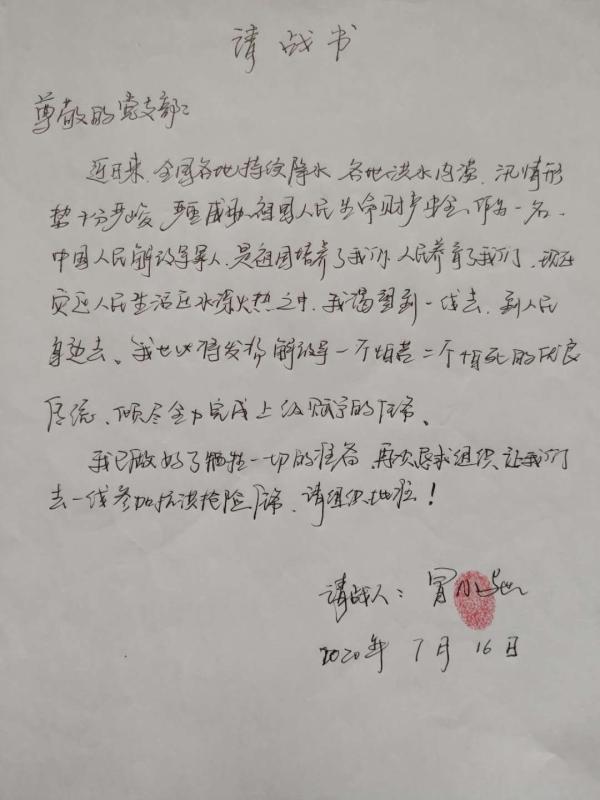 请战书
尊敬的党支部：
近日来,全国各地持续降水,各地洪水内涝,汛情形
势十分严峻,严重威胁祖国人民生命财产安全,作为一名
中国人民解放军军人,是祖国培养了我们,人民养育了我们,现在
灾区人民生活在水深火热之中,我渴望到一线去,到人民
身边去、我也必将发扬解放军一不怕苦二不怕死的优良
传统、倾尽全力完成上级赋予的任务、
我已做好了牺牲一切的准备,再次恳求组织,让我们
去一线参加抗洪抢险任务,请组织批准！
请战人：
2020年 7月 16日